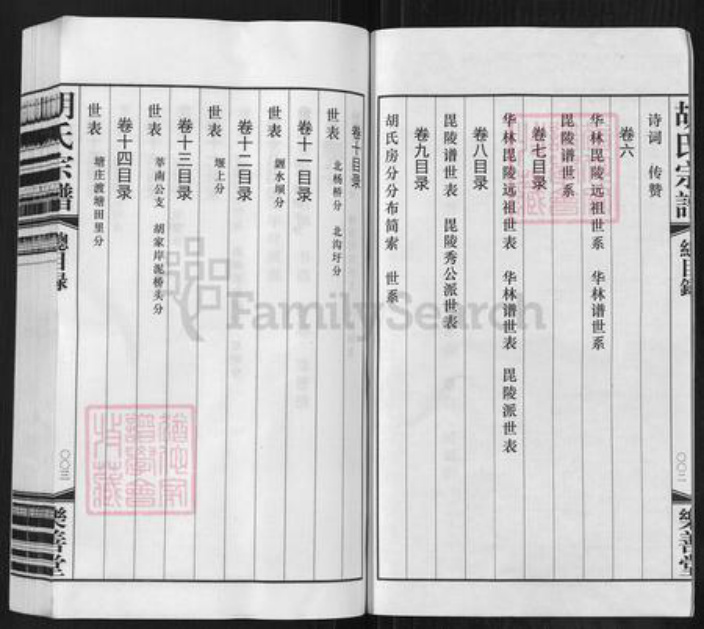 胡氏宗譜
總目録
〇〇二
樂善堂
诗词 传赞
卷六
华林毘陵远祖世系 华林谱世系
毘陵谱世系
卷七目录
华林毘陵远祖世表 华林谱世表 毘陵派世表
卷八目录
毘陵谱世表 毘陵秀公派世表
卷九目录
胡氏房分分布简索 世系
卷十目录
世表 北杨桥分 北沟圩分
卷十一目录
世表 水坝分
卷十二目录
世表 堰上分
卷十三目录
世表 莘南公支 胡家岸泥桥头分
卷十四目录
世表 塘庄渡塘田里分
胡氏宗譜
總目録
〇〇三
樂善堂
FamilySearch